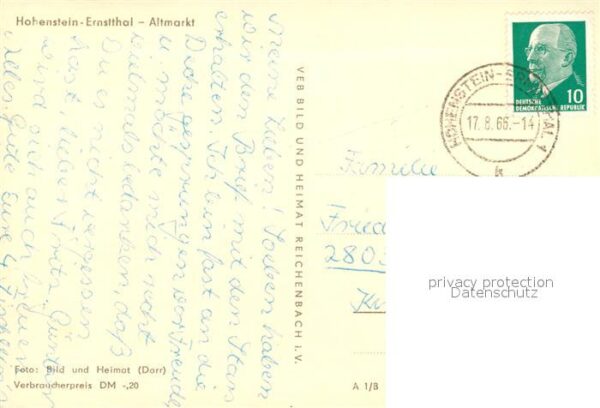 Hohenstein-Ernstthal – Altmarkt
Meine Lieben! Soeben haben
wir den Brief mit den Stars
erhalten. Ich bin fast an die
Decke gesprungen vor Freude
u. möchte mich recht
vielmals bedanken, daß
Du e. nicht vergessen
hast, lieber Fritz. Günter
wird sich auch
Alles Gute Eure
Foto: Bild und Heimat (Darr)
Verbraucherpreis DM -,20
VEB BILD UND HEIMAT REICHENBACH i. V.
A 1/B
DEUTSCHE
DEMOKRATISCHE REPUBLIK
10
HOHENSTEIN-ERNSTTHAL 1
17.8.66.-14
k
Familie
Fried
2803
privacy protection
Datenschutz